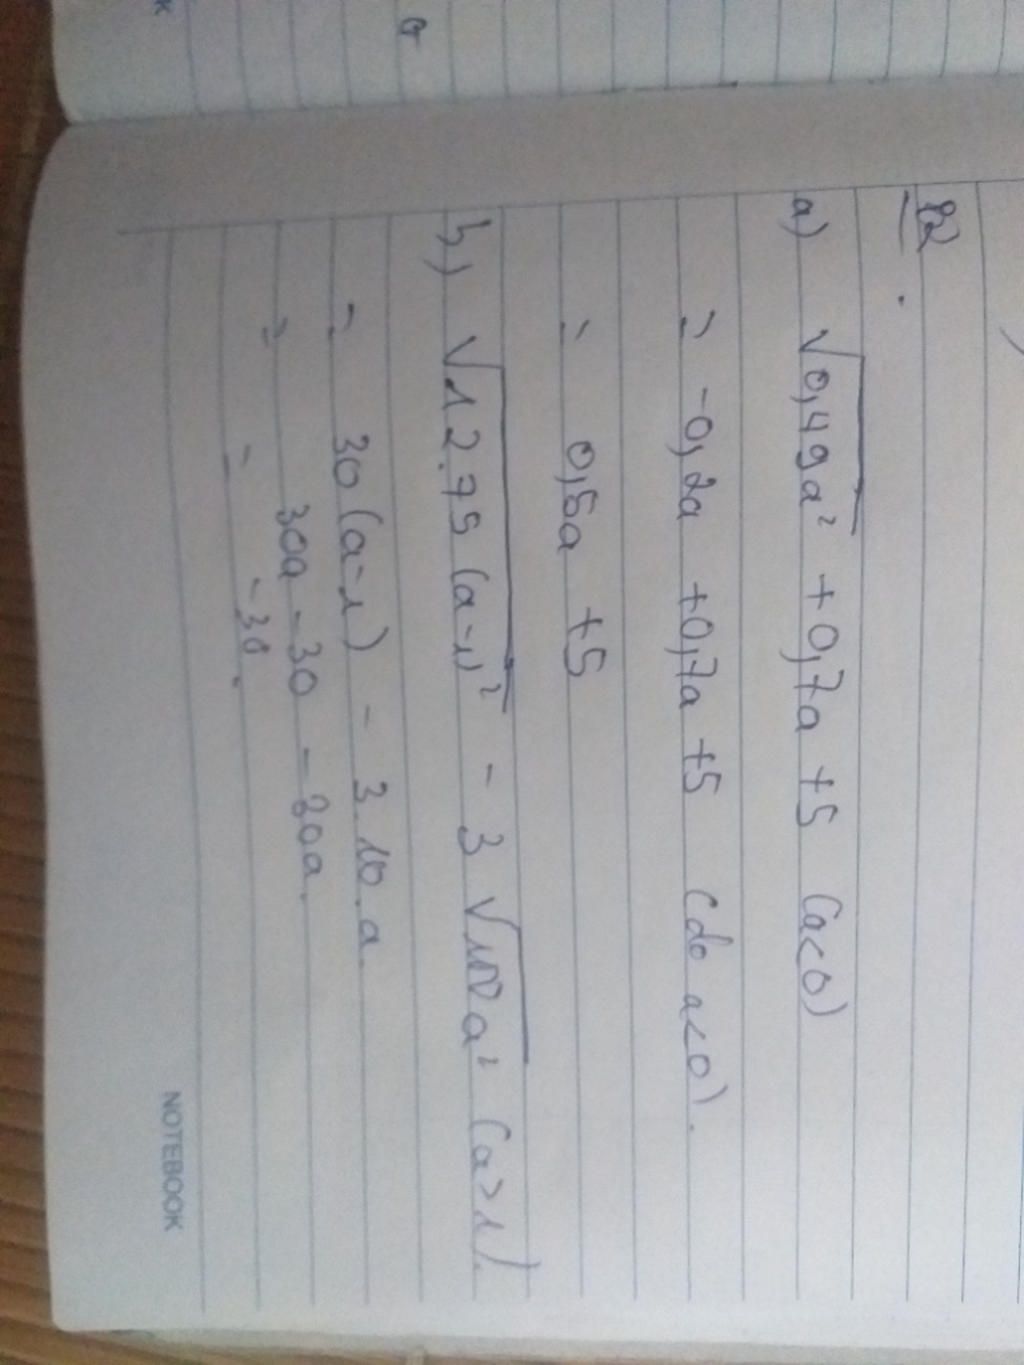 B2.
a) √0,49a² + 0,7a + 5 (a<0)
= -0,2a + 0,7a + 5 (do a<0).
= 0,5a + 5
b) √12.75(a-1)² - 3√100a² (a>1).
= 30(a-1) - 3.10.a
= 30a - 30 - 30a.
= -30.
NOTEBOOK